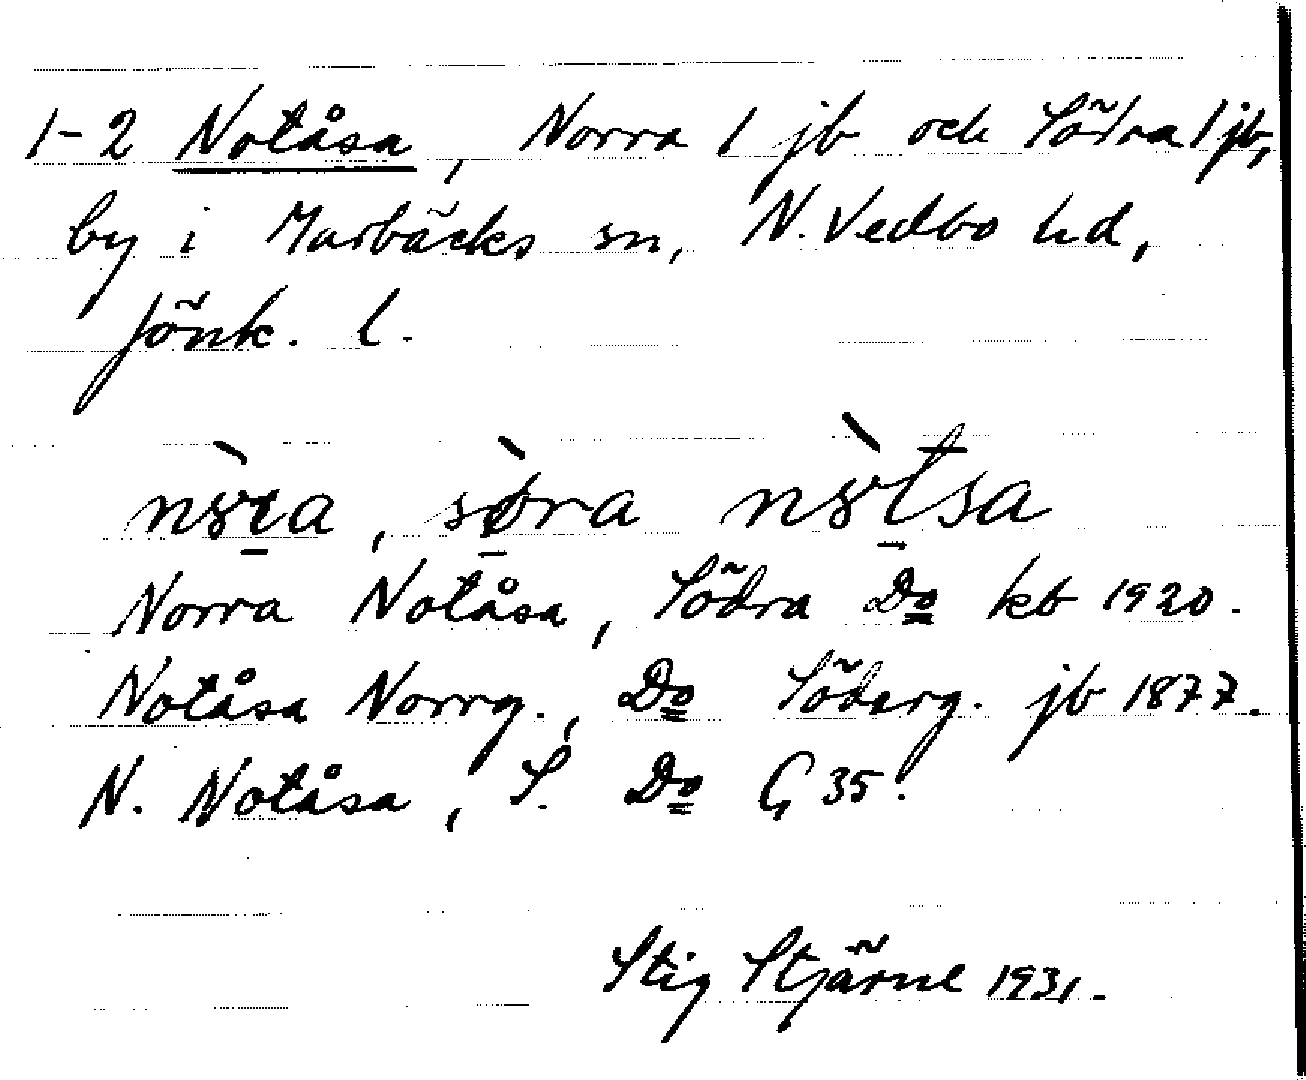 1-2 Notåsa, Norra 1 jb och Södra 1 jb,
by i Marbäcks sn, N. Vedbo hd,
Jönk. l.
Norra Notåsa, Södra Do kb 1920.
Notåsa Norrg., Do Söderg. jb 1877.
N. Notåsa, S. Do G 35.
Stig Stjärne 1931.